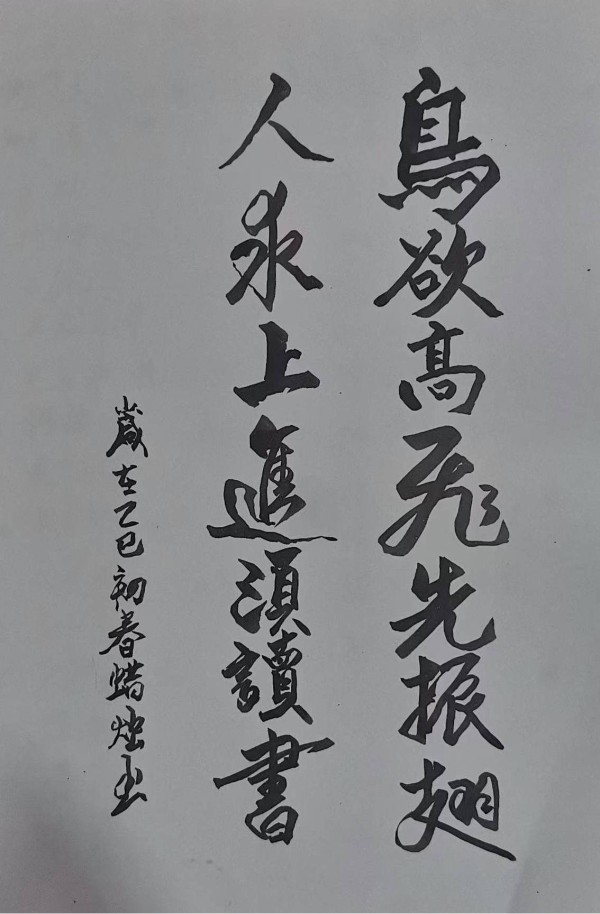 鳥欲高飛先振翅
人求上進須讀書
歲在乙巳初春蜡烛玉